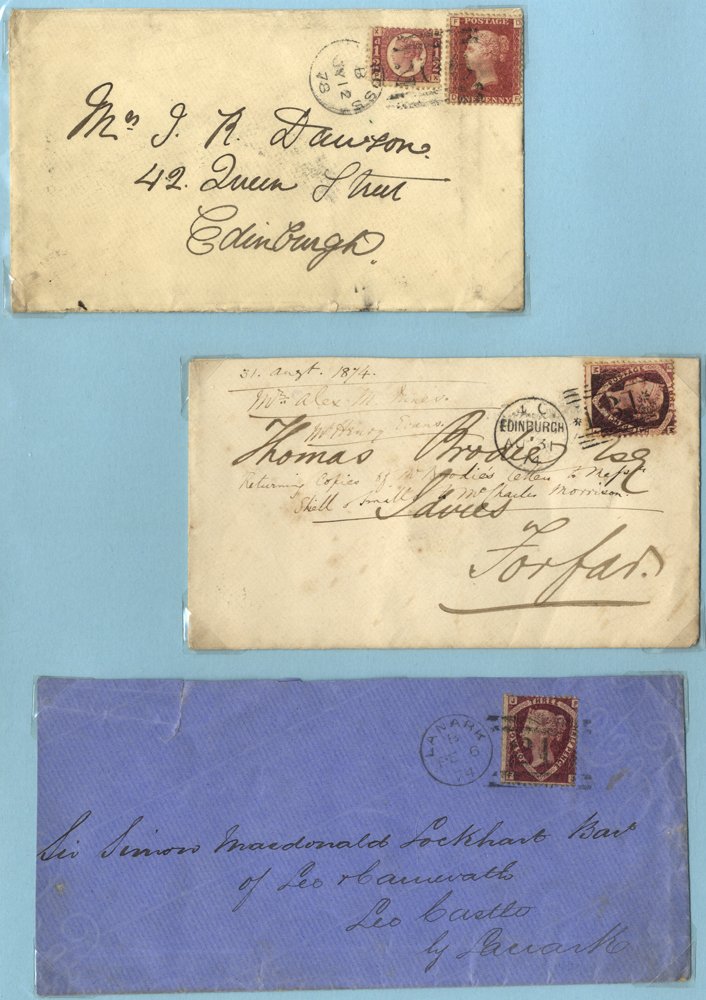 POSTAGE
ONE PENNY
B
JY 12
78
Mrs J. R. Dawson.
42. Queen Street
Edinburgh.
31. Augt. 1874.
Mr Alex. M.
Mr Henry Evans.
EDINBURGH
AU 31
74
Thomas Brodie Esq
Returning Copies of Mr Brodie's letter to Messrs
Shell & Small & Mr Charles Morrison.
Forfar.
LANARK
6
74
THREE
HALF PENCE
Sir Simon Macdonald Lockhart Bart
of Lee & Carnwath
Lee Castle
by Lanark